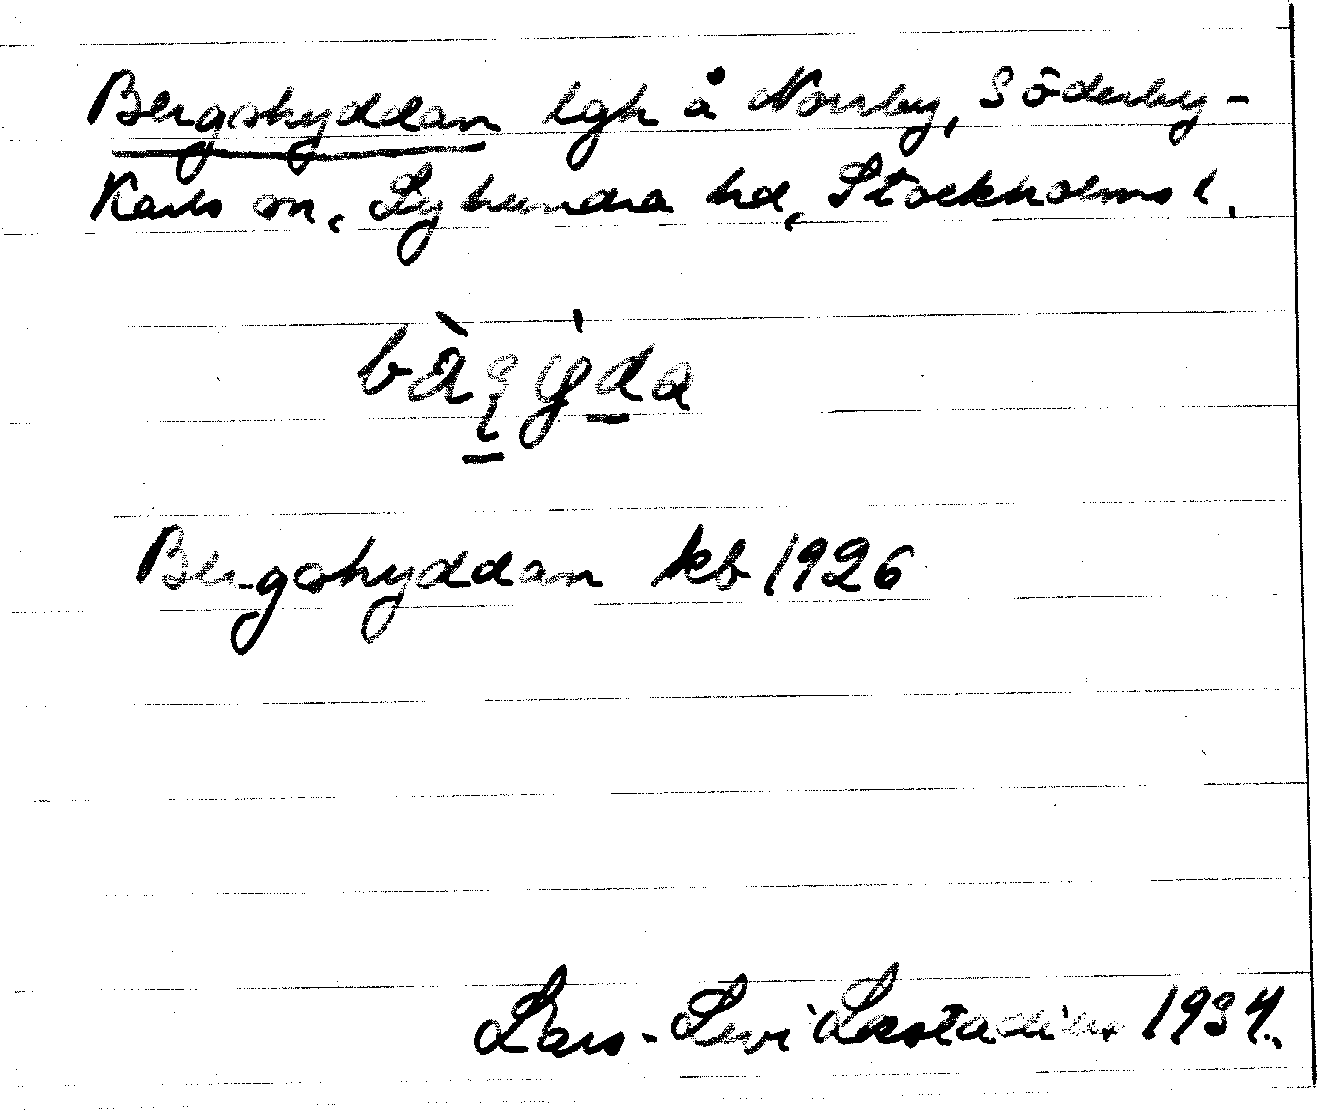 Bergshyddan lgh å Norrby, Söderby-
Karls sn, Lyhundra hd, Stockholms l.
Bergshyddan kb 1926
Lars-Levi Læstadius 1934.